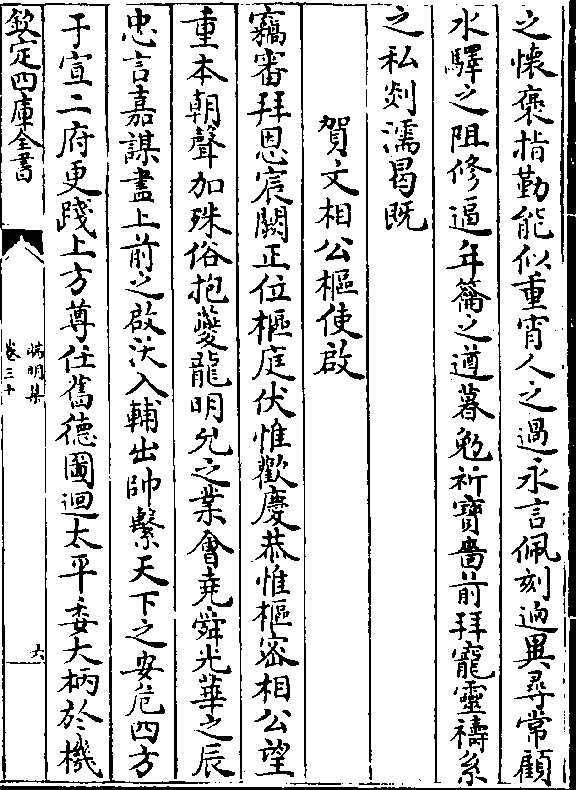 之懷褒指勤能似重宵人之過永言佩刻逈異尋常顧
水驛之阻修逼年籥之遒暮勉祈寶嗇前拜寵靈禱系
之私剡濡曷既
賀文相公樞使啟
竊審拜恩宸闕正位樞庭伏惟歡慶恭惟樞密相公望
重本朝聲加殊俗抱夔龍明允之業會堯舜光華之辰
忠言嘉謀盡上前之啟沃入輔出帥繫天下之安危四方
于宣二府更踐上方尊任舊德圖迴太平委大柄於機
欽定四庫全書
端明集
卷三十
六